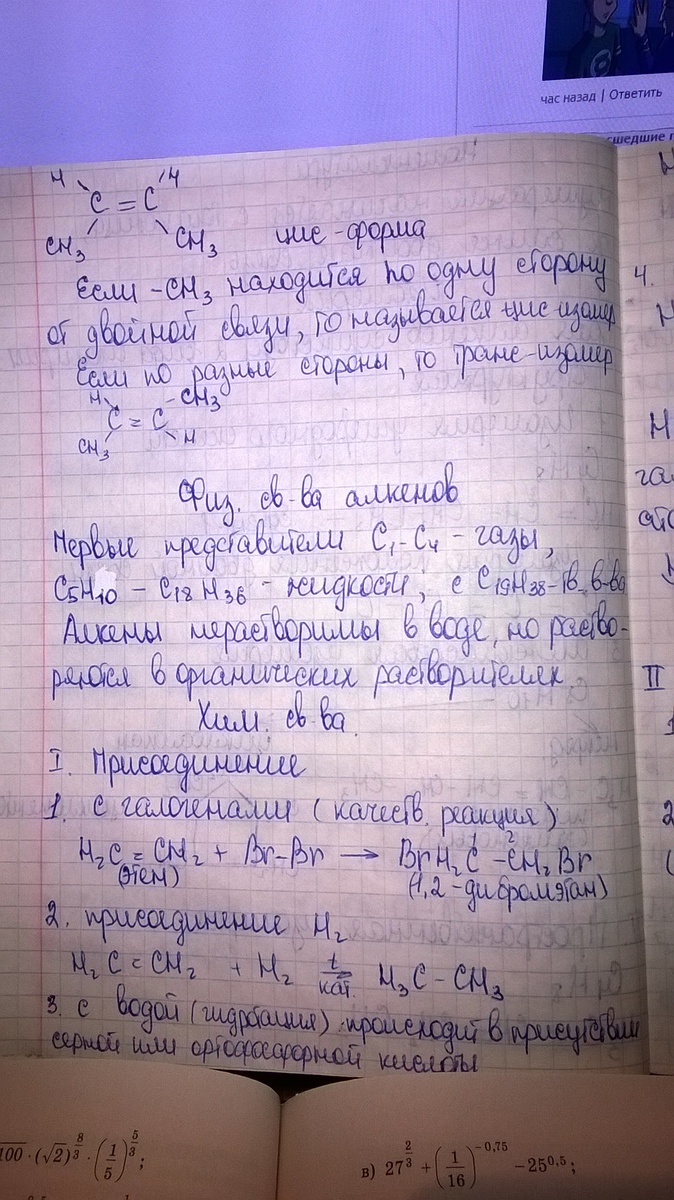 час назад | Ответить
сшедшие
H H
C = C
CH3 CH3 цис-форма
Если -CH3 находится по одну сторону
от двойной связи, то называется цис-изомер
Если по разные стороны, то транс-изомер
H -CH3
C = C
CH3 H
Физ. св-ва алкенов
Первые представители C1-C4 - газы,
C5H10 - C18H36 - жидкости, с C19H38-тв. в-ва
Алкены нерастворимы в воде, но раство-
ряются в органических растворителях
Хим. св-ва.
I. Присоединение
1. с галогенами (качеств. реакция)
H2C = CH2 + Br-Br → BrH2C¹-C²H2Br
(этен) (1,2-дибромэтан)
2. присоединение H2
H2C = CH2 + H2 t ⇌ кат. H3C - CH3
3. с водой (гидротация) происходит в присутствии
серной или ортофосфорной кислоты
4.
H
H
га
II
2
100 · (√2)^(8/3) · (1/5)^(5/3);
в) 27^(2/3) + (1/16)^(-0,75) - 25^(0,5);